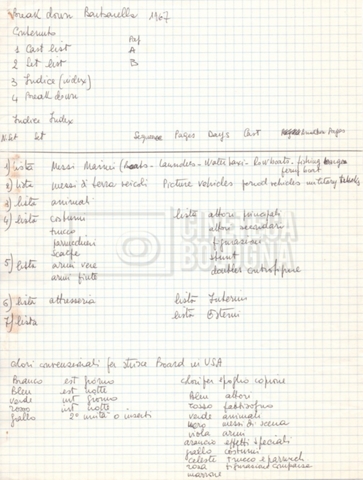 Break down Barbarella 1967
Contenuto Ref
1 Cast list A
2 Set list B
3 Indice (index)
4 Break down
Indice Index
N.Set Set Sequence Pages Days Cast Pages
1) lista Mezzi Marini (boats - Launches - Water taxi - Row boats - fishing
ferry boat
2) lista mezzi di terra veicoli Picture vehicles period vehicles military vehicles
3) lista animali
4) lista costumi lista attori principali
trucco attori secondari
parrucchini figurazioni
scarpe stunt
5) lista armi vere doubles controfigure
armi finte
6) lista attrezzeria lista Interni
7) lista lista Esterni
CINETECA
BOLOGNA
colori convenzionali per strisce Board in USA
Bianco est giorno colori per spoglio copione
Bleu est notte Bleu attori
verde int giorno rosso fabbisogno
rosso int notte verde animali
giallo 2° unità o inserti nero mezzi di scena
viola armi
arancio effetti speciali
giallo costumi
celeste trucco e parrucch
rosa figurazioni comparse
marrone